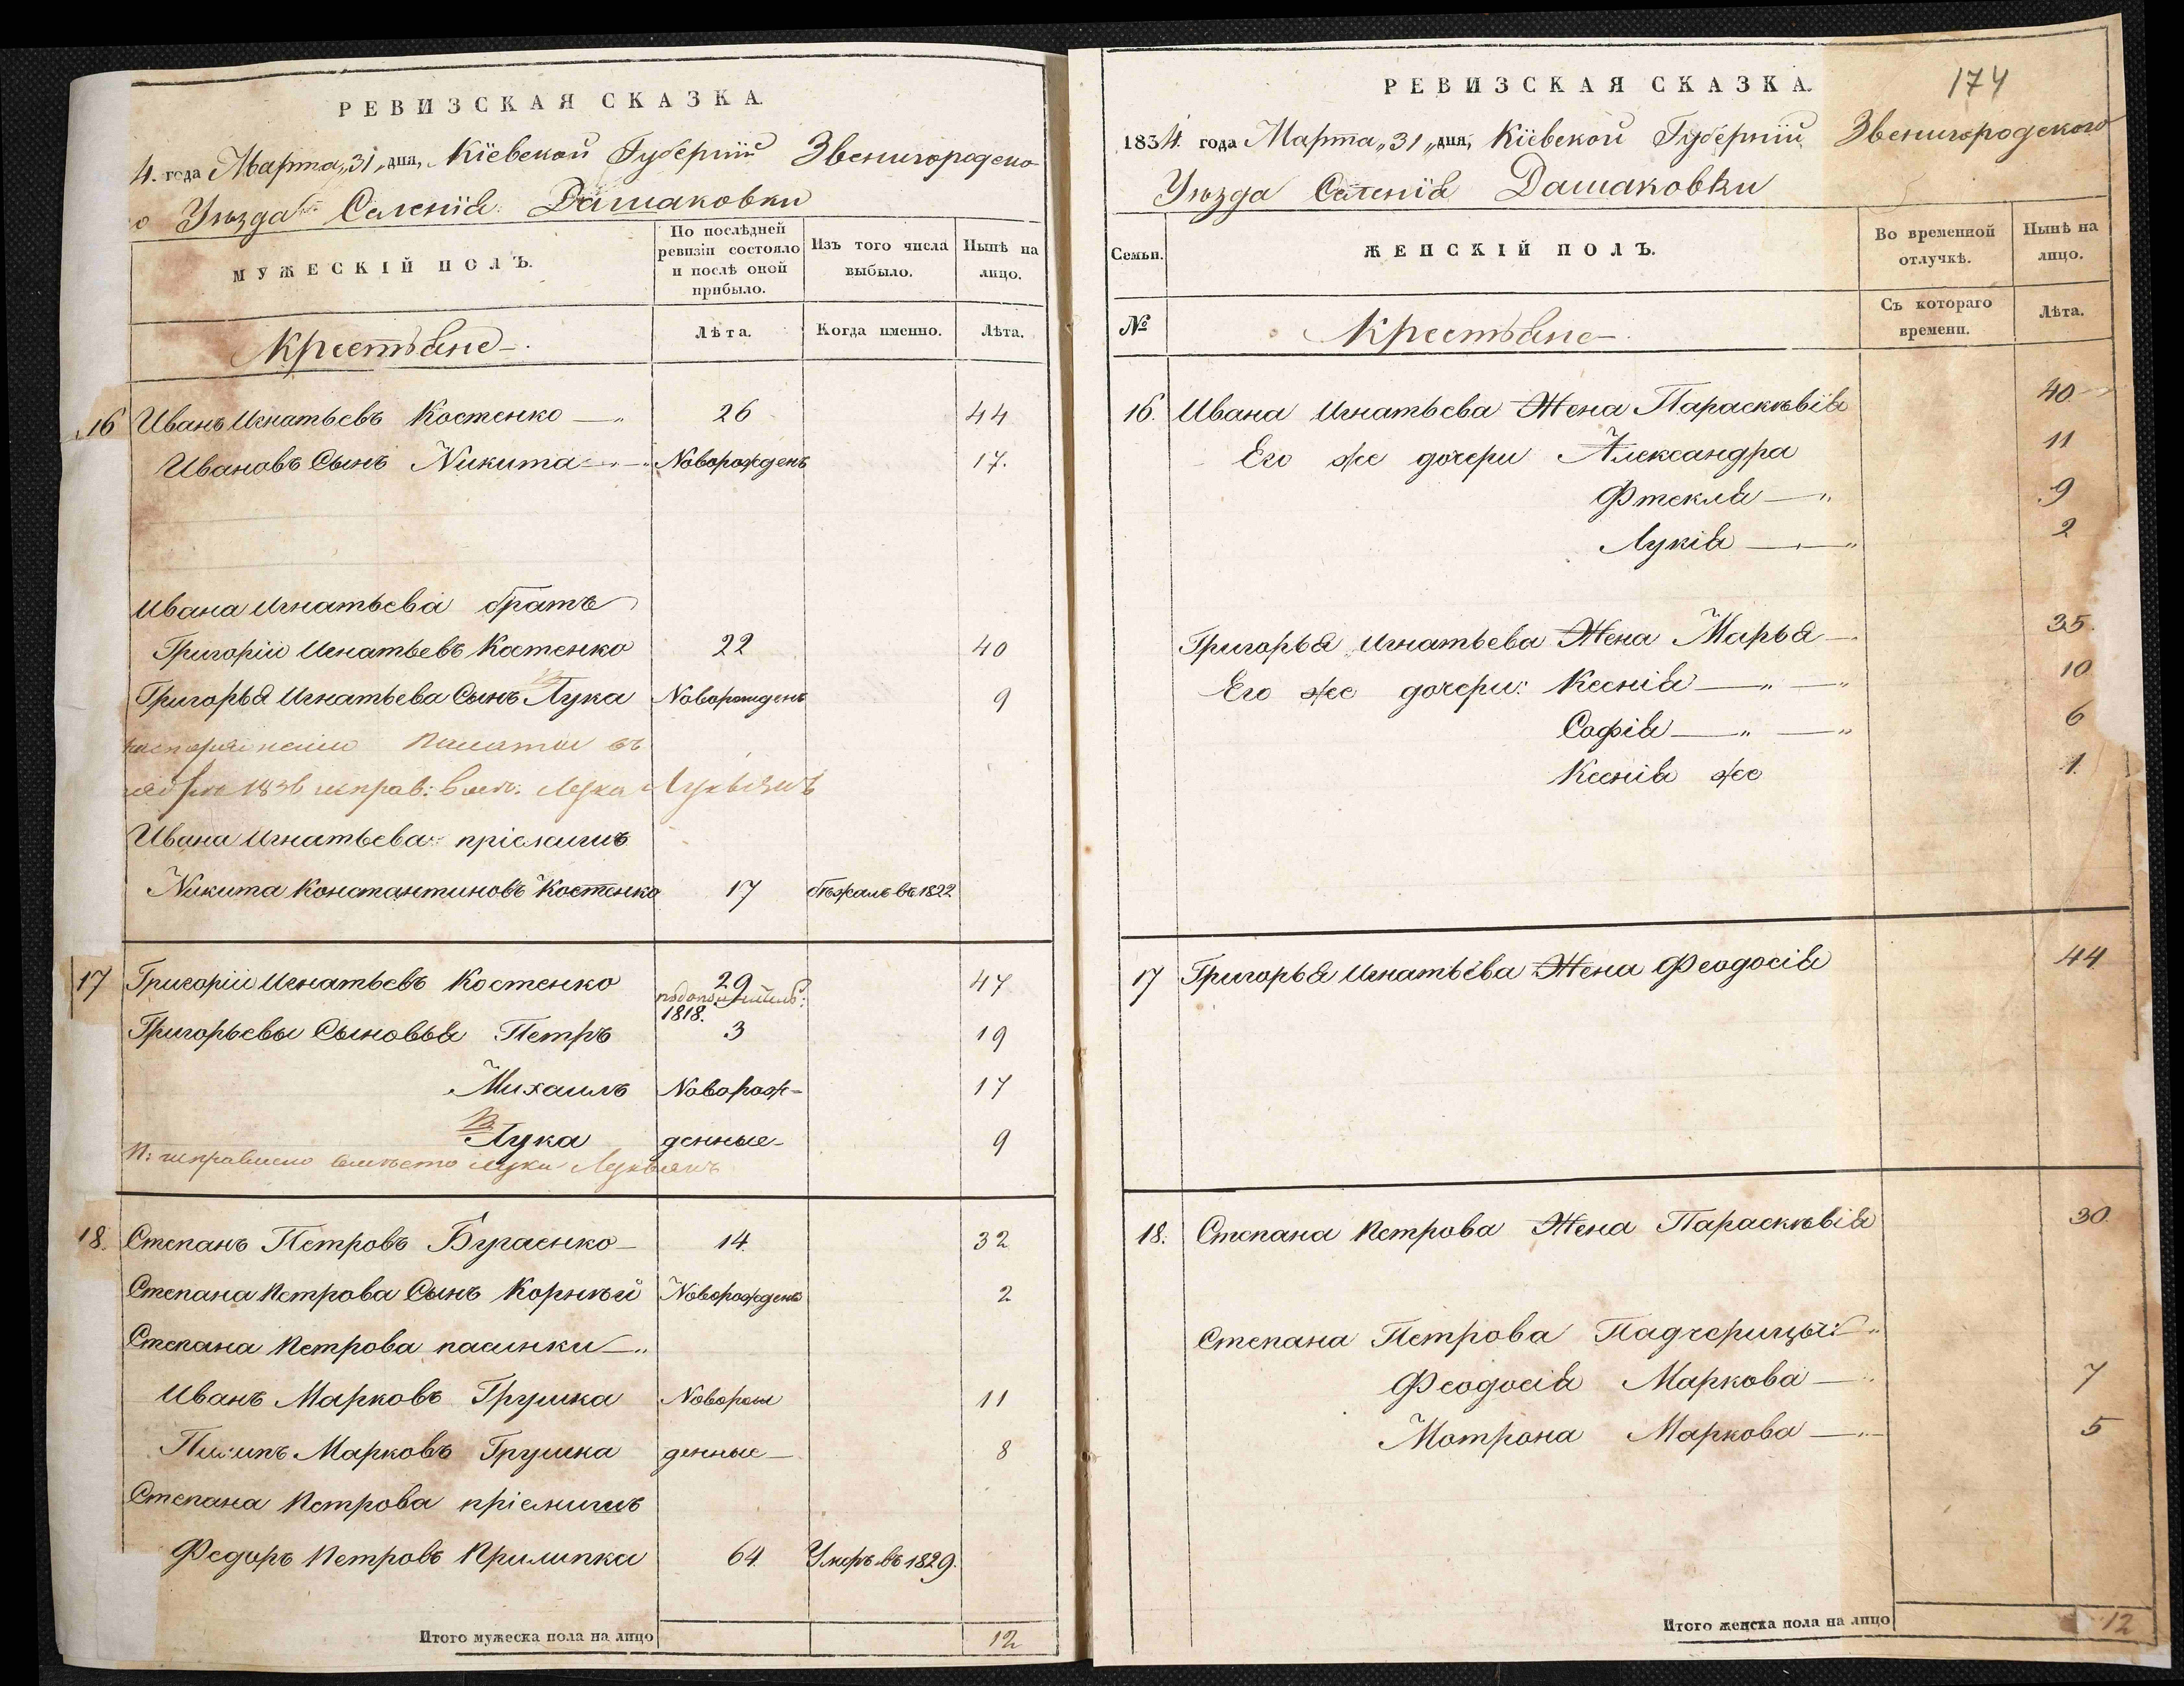 РЕВИЗСКАЯ СКАЗКА.
4. года Марта „31„ дня, Кіевской Губерніи Звенигородско
о Уѣзда Селенія Дашаковки
МУЖЕСКІЙ ПОЛЪ.
По послѣдней ревизіи состояло и послѣ оной прибыло.
Изъ того числа выбыло.
Нынѣ на лицо.
Крестьяне
Лѣта.
Когда именно.
Лѣта.
16 Иванъ Игнатьевъ Костенко 26 44
Ивановъ Сынъ Никита Новорожденъ 17.
Ивана Игнатьева братъ
Григорій Игнатьевъ Костенко 22 40
Григорья Игнатьева Сынъ Лука Новорожденъ 9
Палаты въ
1836 исправ: вмѣс: Лука Лукьянъ
Ивана Игнатьева пріемышъ
Никита Константиновъ Костенко 17 бѣжалъ въ 1822
17 Григорій Игнатьевъ Костенко 29 47
1818.
Григорьевы Сыновья Петръ 3 19
Михаилъ Новорож- 17
Лука денные 9
исправлено вмѣсто Луки Лукьянъ
18. Степанъ Петровъ Бугаенко 14. 32
Степана Петрова Сынъ Корнѣй Новорожденъ 2
Степана Петрова пасынки
Иванъ Марковъ Грушка Новорож 11
Пилипъ Марковъ Грушка денные 8
Степана Петрова пріемышъ
Федоръ Петровъ Прилипка 64 Умеръ въ 1829.
Итого мужеска пола на лицо 12
174
РЕВИЗСКАЯ СКАЗКА.
1834. года Марта „31„ дня, Кіевской Губерніи Звенигородского
Уѣзда Селенія Дашаковки
Семьи.
ЖЕНСКІЙ ПОЛЪ.
Во временной отлучкѣ.
Нынѣ на лицо.
№
Крестьяне
Съ котораго времени.
Лѣта.
16. Ивана Игнатьева Жена Параскѣвія 40
Его же дочери Александра 11
Фтекла 9
Лукія 2
Григорья Игнатьева Жена Марья 35.
Его же дочери: Ксенія 10
Софія 6
Ксенія же 1.
17 Григорья Игнатьева Жена Феодосія 44
18. Степана Петрова Жена Параскѣвія 30
Степана Петрова Падчерицы:
Феодосія Маркова 7
Мотрона Маркова 5
Итого женска пола на лицо 12